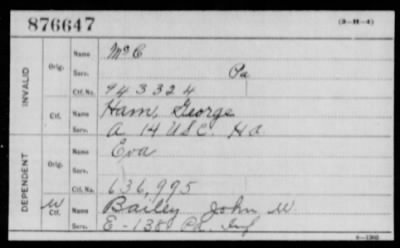 876647 (3-H-4)
INVALID
Orig.
Name Mc C
Serv. Pa
Ctf. No. 943324
Ctf.
Name Ham, George
Serv. A 14 U S C. H A.
DEPENDENT
Orig.
Name Eva
Serv.
Ctf. No. 636,995
W Ctf.
Name Bailey John W
Serv. E-138 Pa. Inf
6-1902